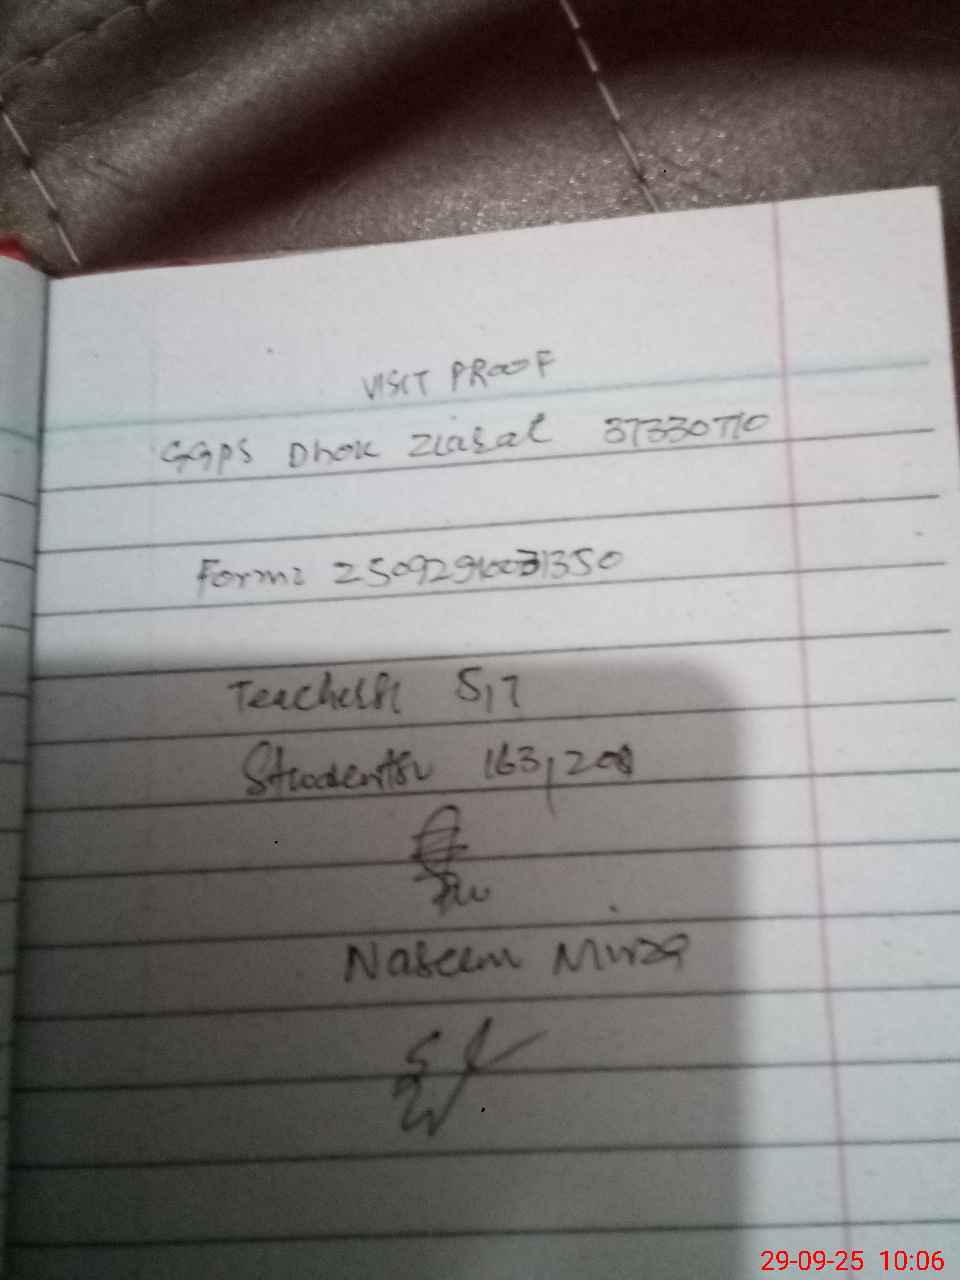 VISIT PROOF
GGPS Dhok Ziasal 37330710
Form: 25092910031350
Teachers 5,7
Students 163, 200
Naseem Mirza
29-09-25 10:06